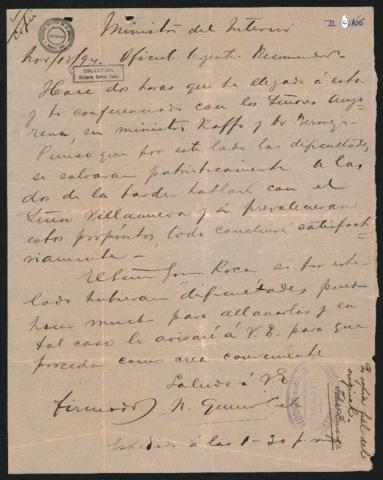 Copia
Ministro del Interior
II 105
Nov/13/94. Oficial Urgente. Recomendado
COLECCIÓN
Hace dos horas que he llegado á esta
y he conferenciado con los Señores
su ministro Raffo y Dr
Pienso que por este lado las dificultades
se salvaran patrioticamente. A las
dos de la tarde hablaré con el
Señor Villanueva y si prevalecieran
estos propósitos, todo concluirá satisfact-
oriamente —
El Señor Gen Roca, si por este
lado hubieran dificultades puede
hacer mucho para allanarlas y en
tal caso le avisaré á V.E. para que
proceda como crea conveniente
Saludo á V.E
Firmado) N.
Es copia fiel del
original.
Expedido á las 1-30 p.m